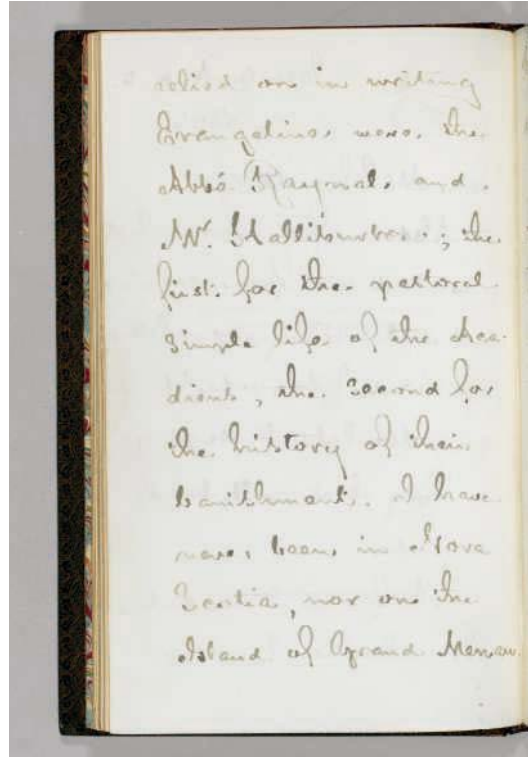 relied on in writing
Evangeline, were, the
Abbé Raynal, and
Mr. Halliburton; the
first for the pastoral
simple life of the Aca-
dians, the second for
the history of their
banishment. I have
never been in Nova
Scotia, nor on the
Island of Grand Menan.